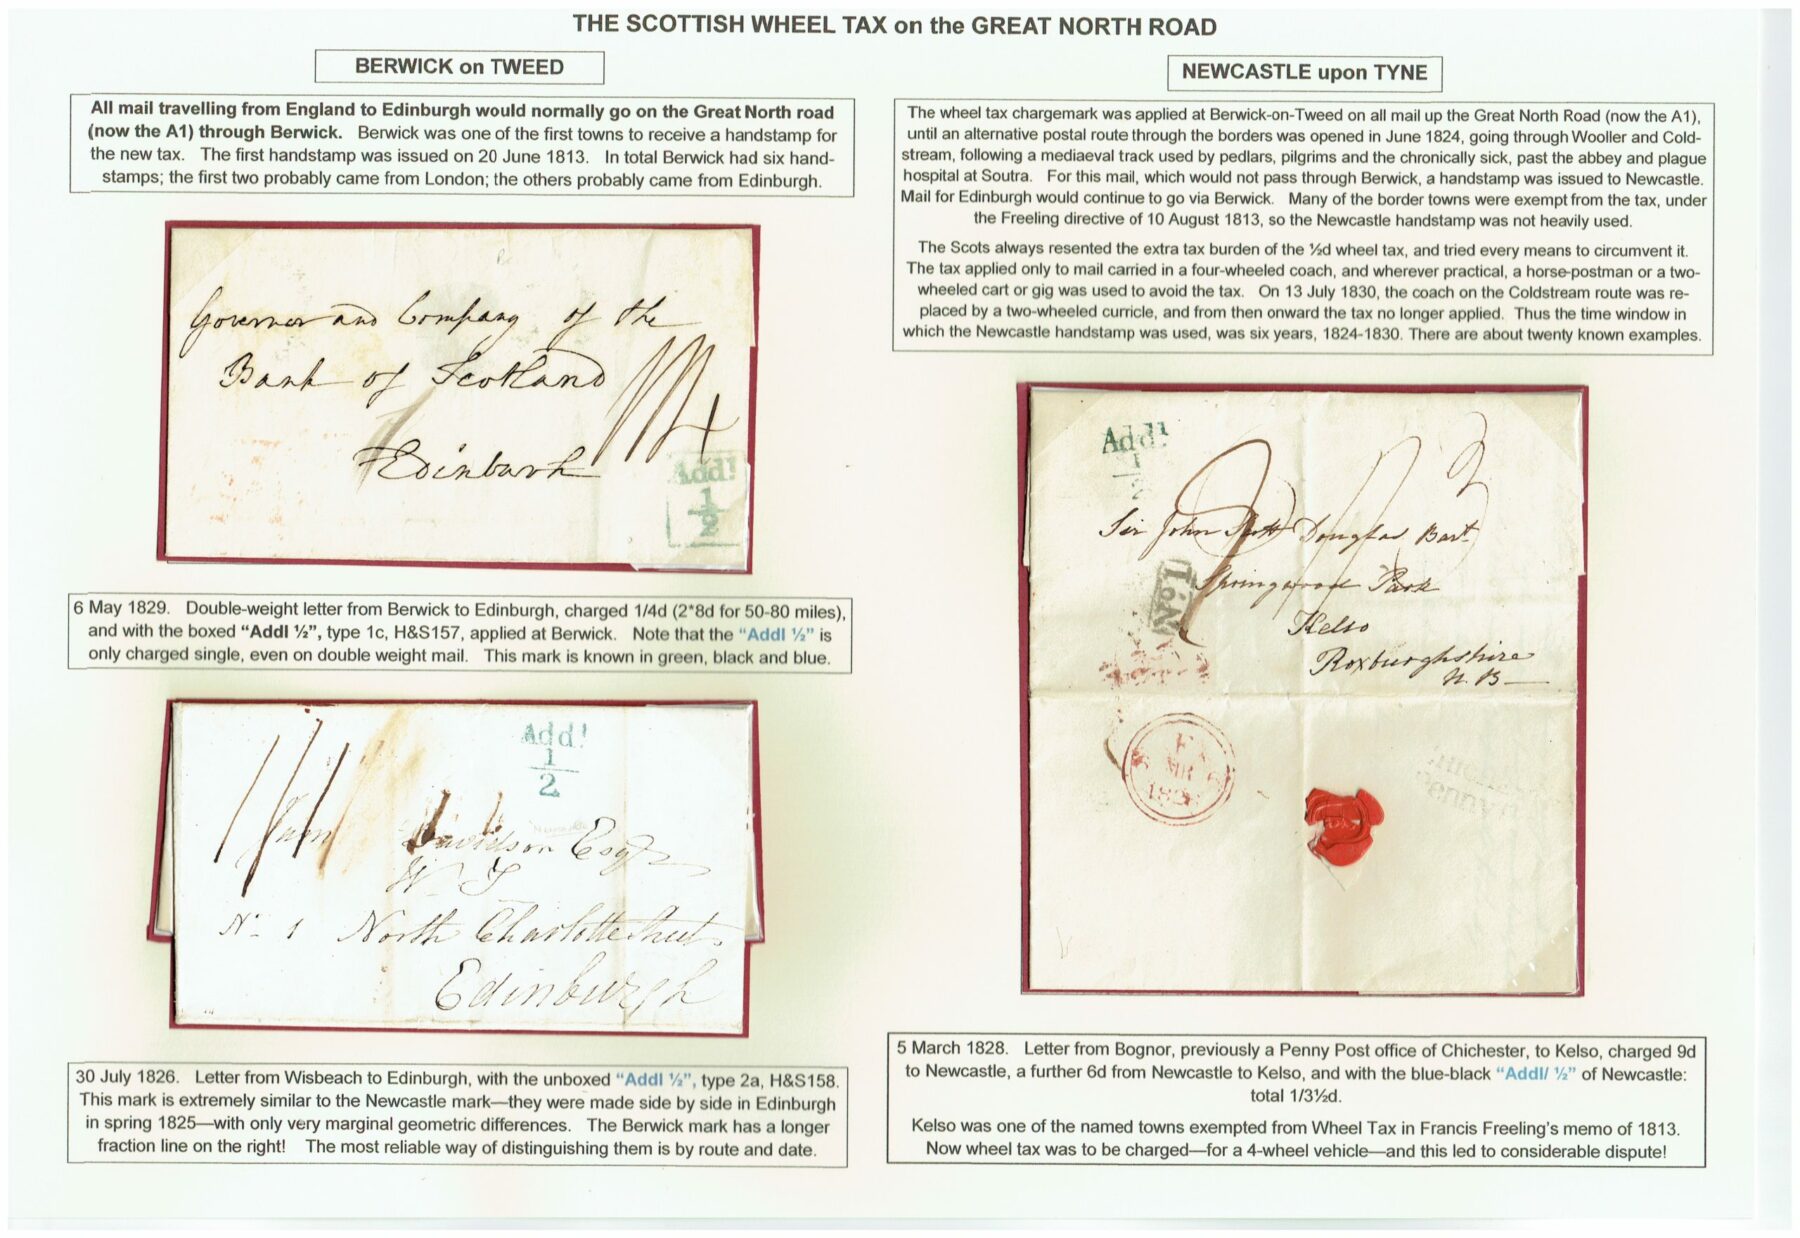 THE SCOTTISH WHEEL TAX on the GREAT NORTH ROAD
BERWICK on TWEED
All mail travelling from England to Edinburgh would normally go on the Great North road
(now the A1) through Berwick. Berwick was one of the first towns to receive a handstamp for
the new tax. The first handstamp was issued on 20 June 1813. In total Berwick had six hand-
stamps; the first two probably came from London; the others probably came from Edinburgh.
Governor and Company of the
Bank of Scotland
Edinburgh
Addl
1
2
6 May 1829. Double-weight letter from Berwick to Edinburgh, charged 1/4d (2*8d for 50-80 miles),
and with the boxed “Addl ½”, type 1c, H&S157, applied at Berwick. Note that the “Addl ½” is
only charged single, even on double weight mail. This mark is known in green, black and blue.
Addl
1
2
Davidson Esqr
W. S
No 1 North Charlotte Street
Edinburgh
30 July 1826. Letter from Wisbeach to Edinburgh, with the unboxed “Addl ½”, type 2a, H&S158.
This mark is extremely similar to the Newcastle mark—they were made side by side in Edinburgh
in spring 1825—with only very marginal geometric differences. The Berwick mark has a longer
fraction line on the right! The most reliable way of distinguishing them is by route and date.
NEWCASTLE upon TYNE
The wheel tax chargemark was applied at Berwick-on-Tweed on all mail up the Great North Road (now the A1),
until an alternative postal route through the borders was opened in June 1824, going through Wooller and Cold-
stream, following a mediaeval track used by pedlars, pilgrims and the chronically sick, past the abbey and plague
hospital at Soutra. For this mail, which would not pass through Berwick, a handstamp was issued to Newcastle.
Mail for Edinburgh would continue to go via Berwick. Many of the border towns were exempt from the tax, under
the Freeling directive of 10 August 1813, so the Newcastle handstamp was not heavily used.
The Scots always resented the extra tax burden of the ½d wheel tax, and tried every means to circumvent it.
The tax applied only to mail carried in a four-wheeled coach, and wherever practical, a horse-postman or a two-
wheeled cart or gig was used to avoid the tax. On 13 July 1830, the coach on the Coldstream route was re-
placed by a two-wheeled curricle, and from then onward the tax no longer applied. Thus the time window in
which the Newcastle handstamp was used, was six years, 1824-1830. There are about twenty known examples.
Addl
1
2
Sir John Scott Douglas Bart
Springwood Park
No.1
Kelso
Roxburghshire
N. B
MR
5 March 1828. Letter from Bognor, previously a Penny Post office of Chichester, to Kelso, charged 9d
to Newcastle, a further 6d from Newcastle to Kelso, and with the blue-black “Addl/ ½” of Newcastle:
total 1/3½d.
Kelso was one of the named towns exempted from Wheel Tax in Francis Freeling's memo of 1813.
Now wheel tax was to be charged—for a 4-wheel vehicle—and this led to considerable dispute!